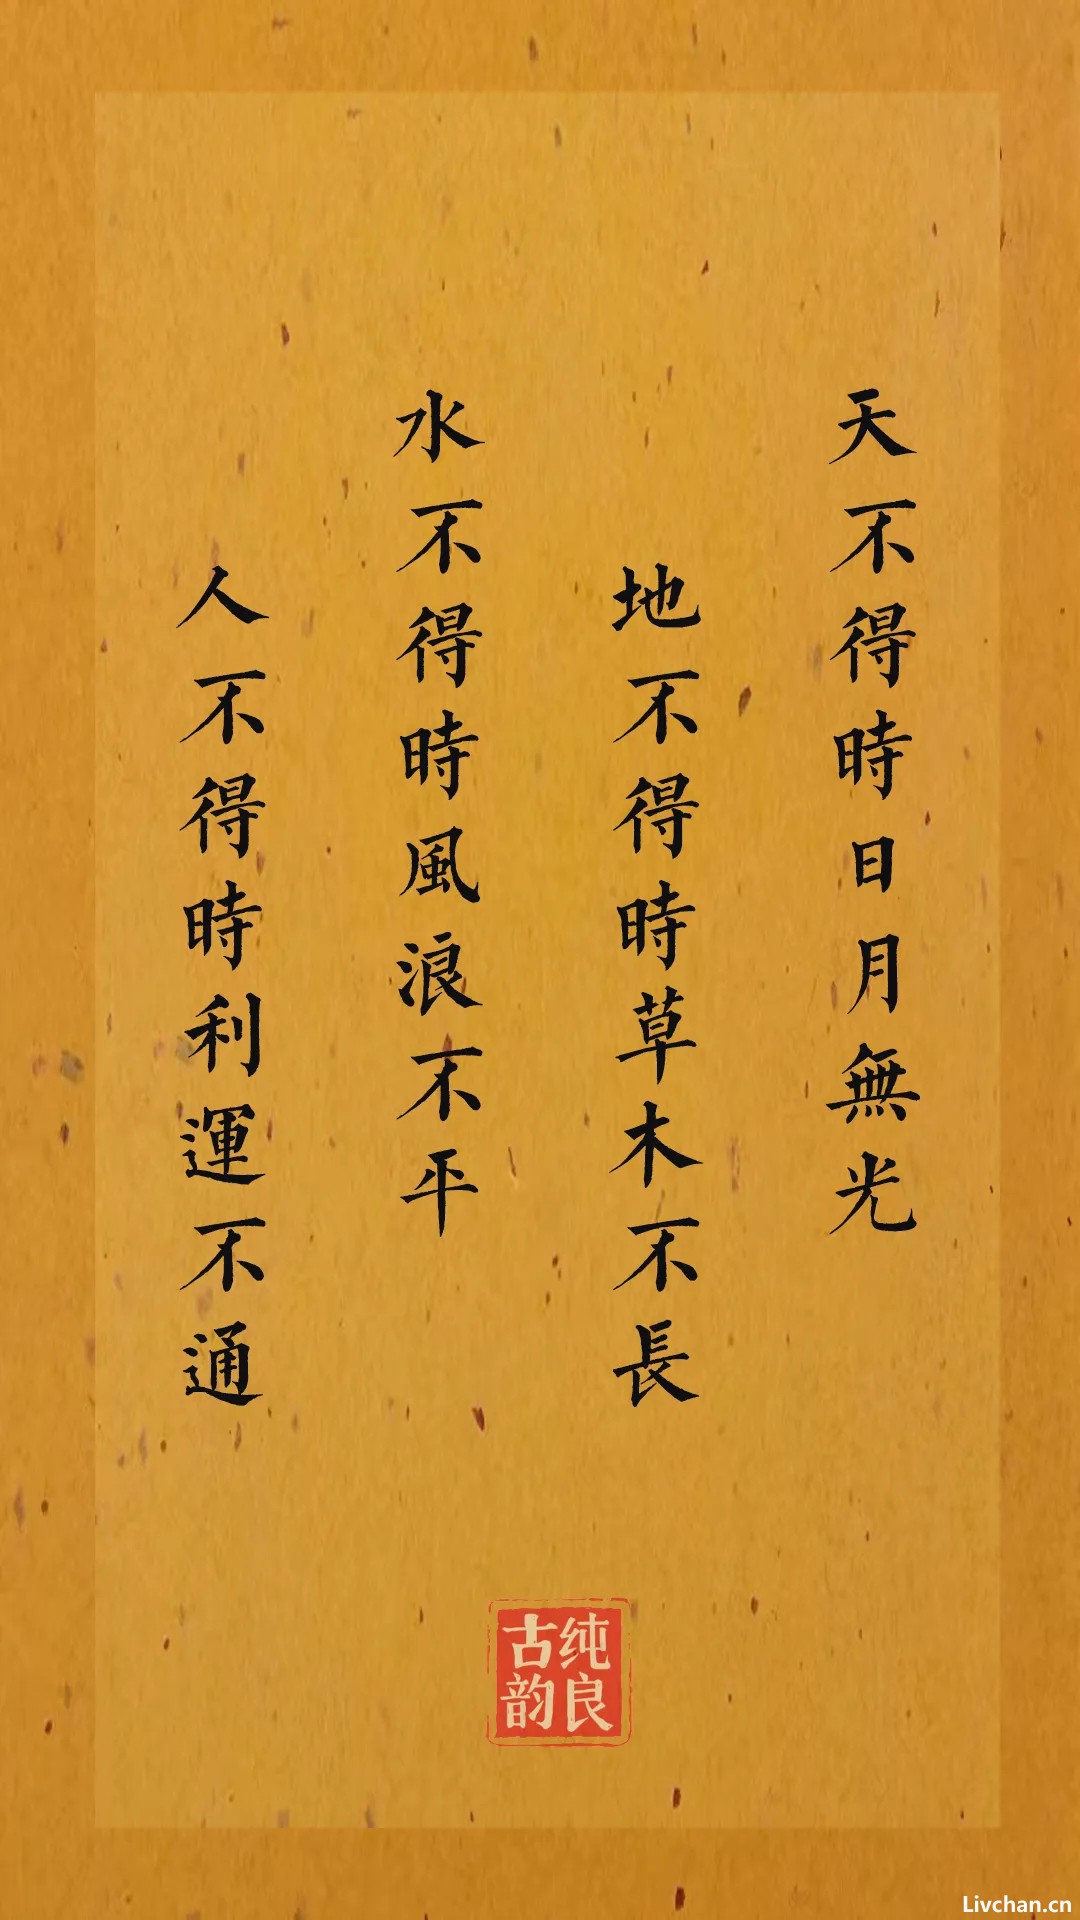 天不得時日月無光
地不得時草木不長
水不得時風浪不平
人不得時利運不通
纯良
古韵
Livchan.cn